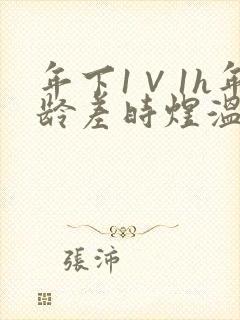 年下1∨1h年
龄差時煌溫
張沛